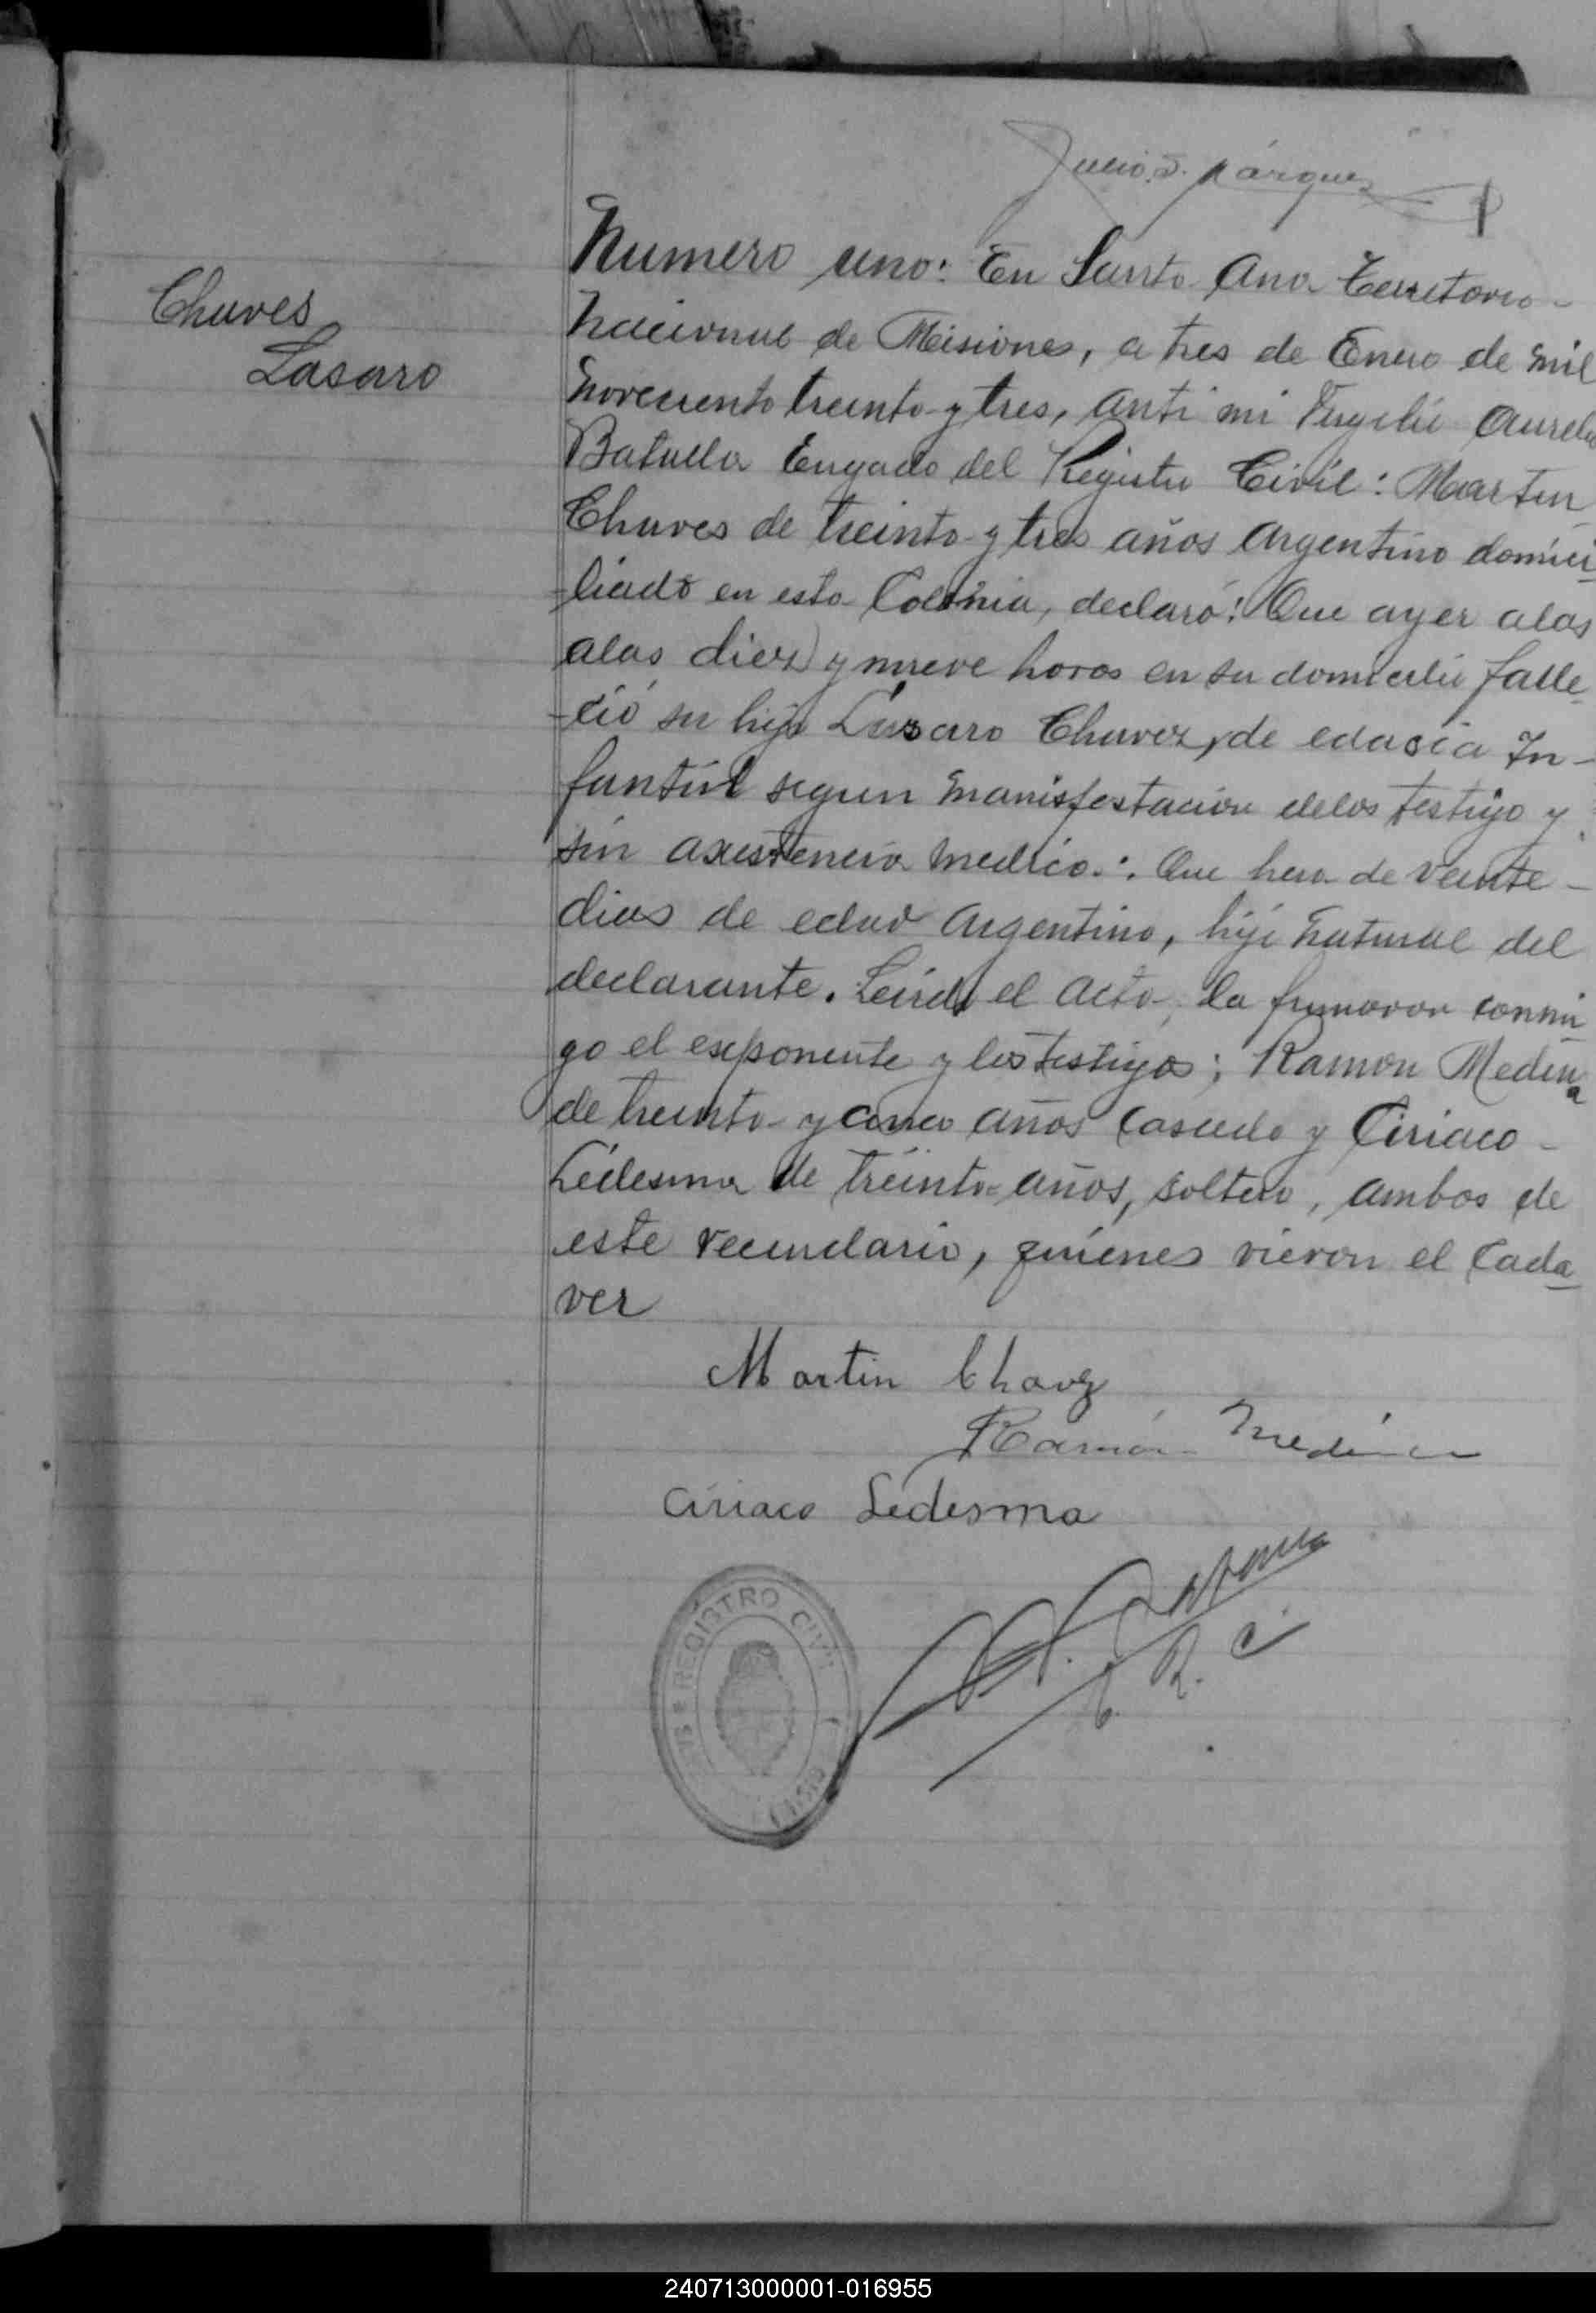 Julio S. Márquez
Chaves
Lasaro
Numero uno: En Santa Ana Territorio
Nacional de Misiones, a tres de Enero de mil
noveciento treinta y tres, Ante mi Virgilio Aurelio
Batalla Engado del Registro Civil: Martin
Chaves de treinta y tres años Argentino domici
liado en esta Colonia, declaró: Que ayer alas
alas diez y nueve horas en su domicilio falle
ció su hijo Lasaro Chavez, de
fantil segun manisfestacion delos testigo y
sin asistencia medica.: Que hera de veinte
dias de edad Argentino, hijo natural del
declarante. Leida el Acta, la firmaron conmi
go el exponente y los testigos; Ramon Medina
de treinta y cinco años Casado y Ciriaco
Ledesma de treinta años, soltero, ambos de
este vecindario, quienes vieron el Cada
ver
Martin Chavez
Ramón Medina
Ciriaco Ledesma
REGISTRO CIVIL
E. R. C.
240713000001-016955